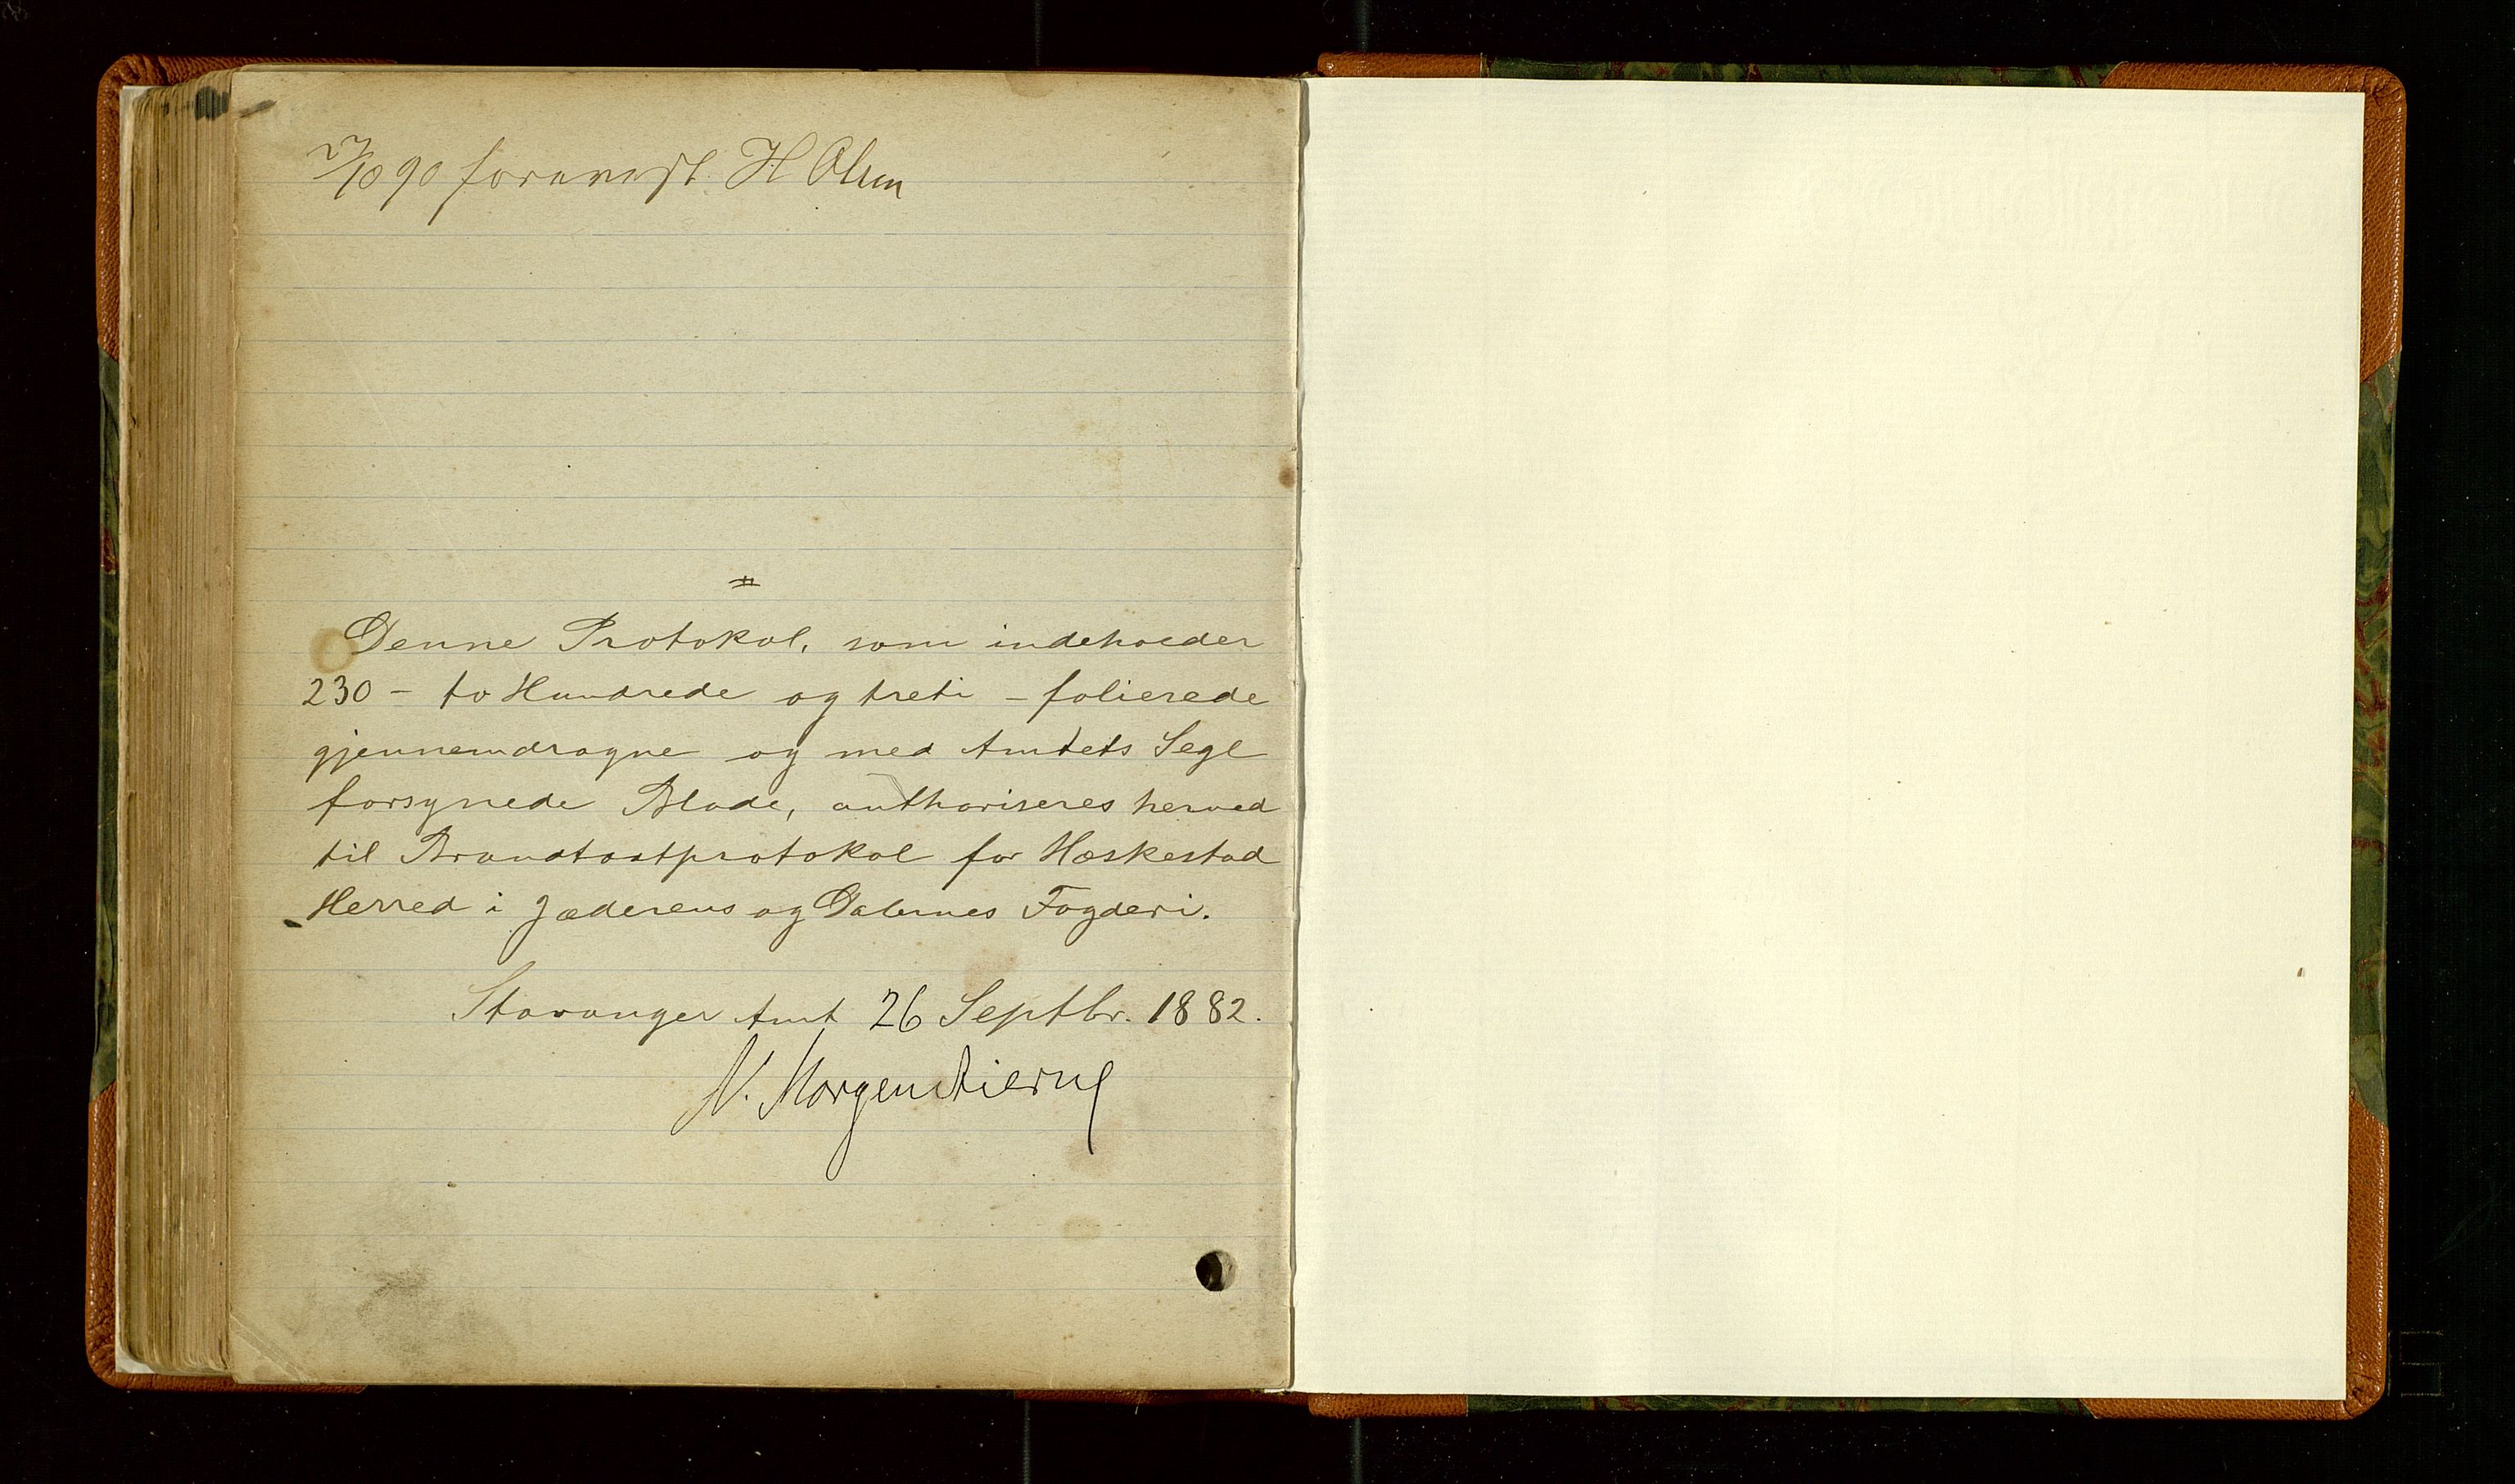 27/10 90 forevist H Olsen
Denne Protokol, som indeholder
230 – to Hundrede og treti – folierede
gjennemdragne og med Amtets Segl
forsynede Blade, authoriseres herved
til Brandtaxtprotokol for Heskestad
Herred i Jæderens og Dalernes Fogderi.
Stavanger Amt 26 Septbr. 1882.
N. Morgenstierne